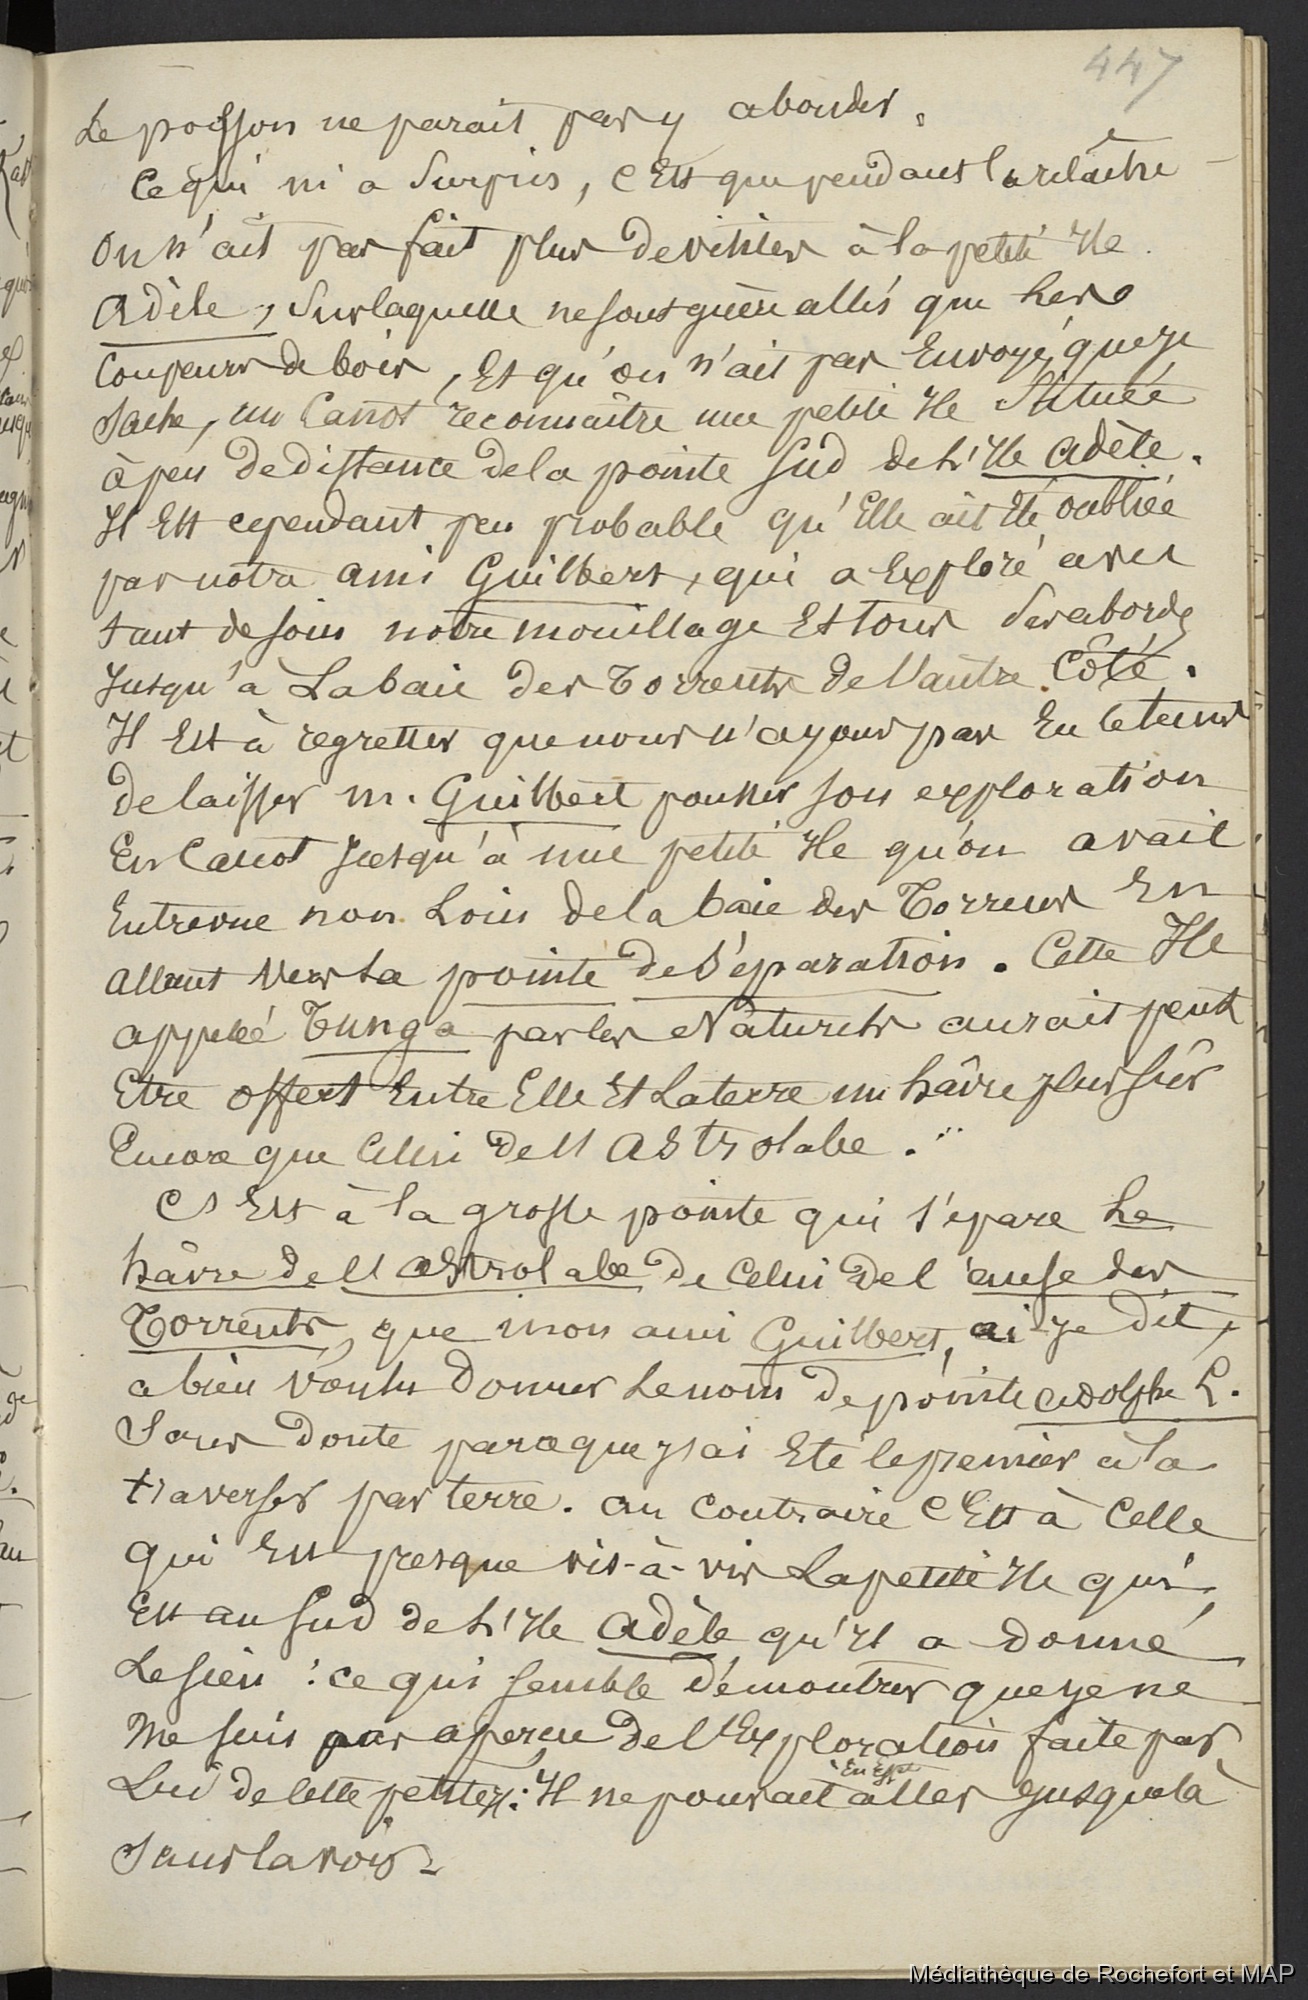 447
Le poisson ne parait pas y abonder.
Ce qui m'a Surpris, C'Est que pendant la relâche
On n'ait pas fait plus de visites à la petite Ile
Adèle, Sur laquelle ne sont guère allés que les
Coupeurs de bois, Et qu'on n'ait pas Envoyé, que je
Sache, un Canot reconnaître une petite Ile Située
à peu De distance de la pointe Sud de L'Ile Adèle.
Il Est cependant peu probable qu'Elle ait Eté oubliée
par notre ami Guilbert, qui a Exploré avec
tant de soin notre mouillage Et tous Ses abords
Jusqu'à La baie des Torrents de l'autre Côté.
Il Est à regretter que nous n'ayons pas Eu le tems
de laisser M. Guilbert pousser son exploration
En Canot Jusqu'à une petite Ile qu'on avait
Entrevue non Loin de la baie des Torrens En
allant Vers La pointe de Séparation. Cette Ile
appelée Tunga par les Naturels aurait peut
Etre offert Entre Elle Et La terre un hâvre plus sûr
Encore que Celui de l'Astrolabe.
C'Est à la grosse pointe qui sépare Le
hâvre de l'Astrolabe de Celui de l'anse des
Torrents, que mon ami Guilbert, ai-je dit,
a bien voulu Donner Le nom de pointe Adolphe L.
Sans doute parce que j'ai Eté le premier à la
traverser par terre. au Contraire C'Est à Celle
qui Est presque vis-à-vis La petite Ile qui
Est au Sud de L'Ile Adèle qu'Il a donné
Le sien : ce qui semble démontrer que je ne
me suis pas aperçu de l'Exploration faite par
Lui de cette petite I. : Il ne pouvait En Effet aller Jusque là
Sans la voir.
Médiathèque de Rochefort et MAP